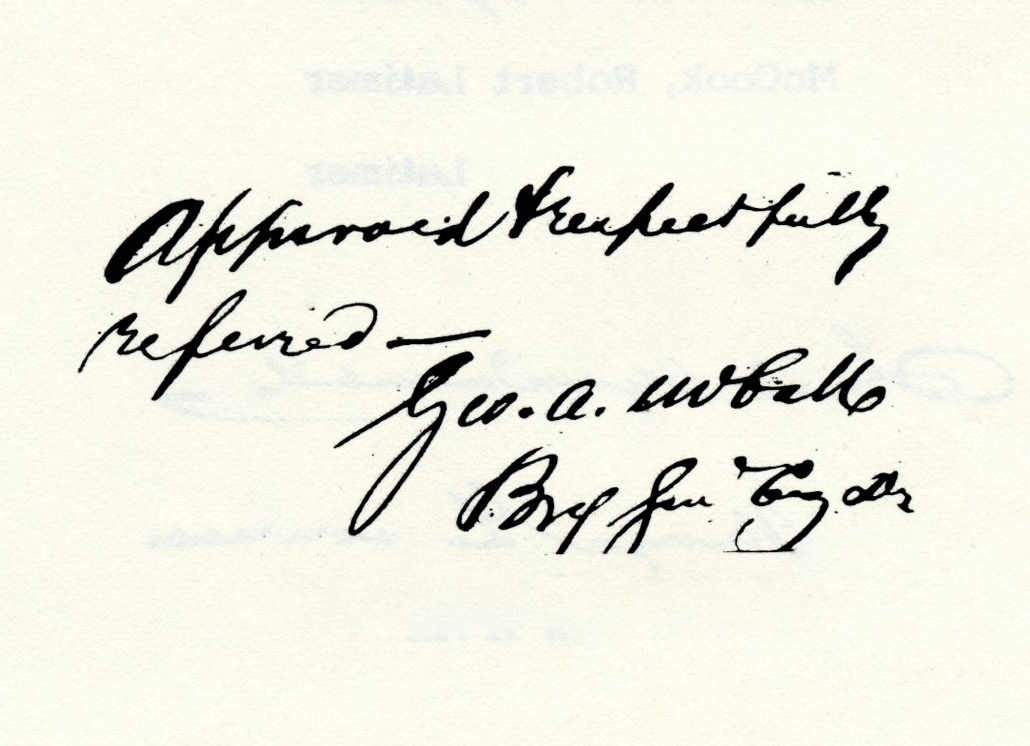 McCook, Robert Latimer
Latimer
Approved & respectfully
referred —
Geo. A. McCall
Brg Gen Comg Div